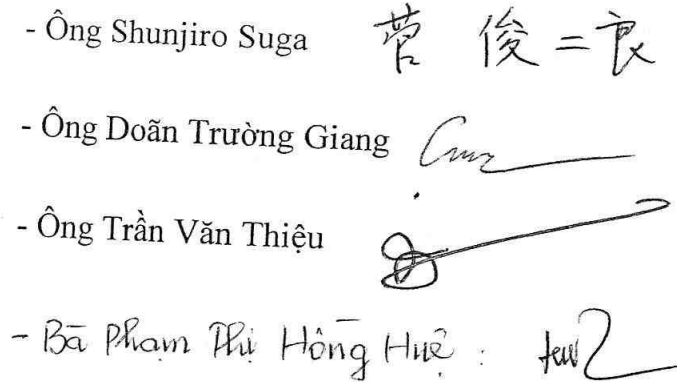 - Ông Shunjiro Suga 菅 俊二良
- Ông Doãn Trường Giang
- Ông Trần Văn Thiệu
- Bà Phạm Thị Hồng Huệ :